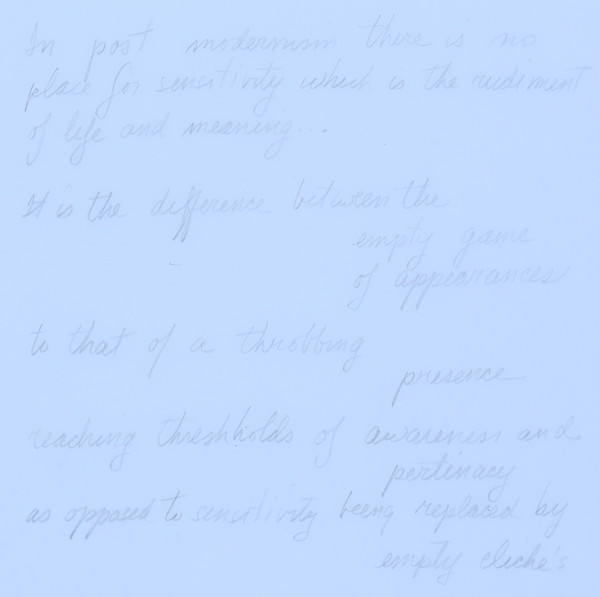 In post modernism there is no
place for sensitivity which is the rudiment
of life and meaning...
It is the difference between the
empty game
of appearances
to that of a throbbing
presence
reaching threshholds of awareness and
pertinacy
as opposed to sensitivity being replaced by
empty cliché's